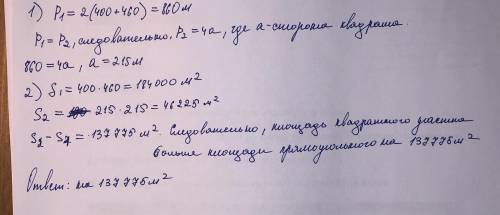 1) P₁ = 2(400+460) = 860 м
P₁ = P₂, следовательно, P₂ = 4a, где a - сторона квадрата.
860 = 4a, a = 215 м
2) S₁ = 400·460 = 184000 м²
S₂ = 215·215 = 46225 м²
S₂ - S₁ = 137775 м². Следовательно, площадь квадратного участка
больше площади прямоугольного на 137775 м²
Ответ: на 137775 м²